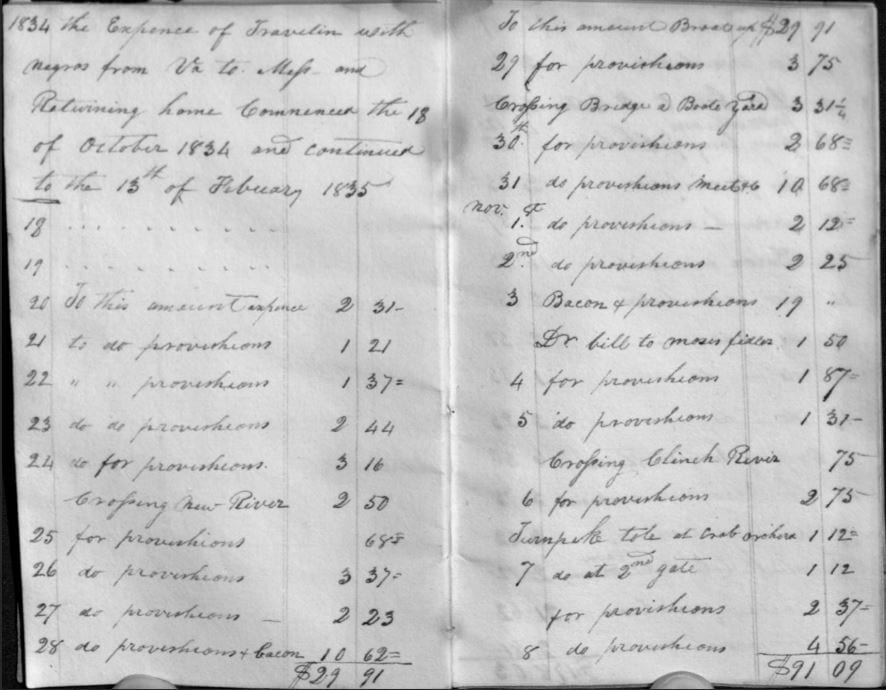 1834 the Expence of Travelin with
negros from Va to Mess and
Retwining home Commenced the 18
of October 1834 and continued
to the 13th of Febuary 1835
18 . . . . . . . . .
19 . . . . . . . . .
20 To this amount expence 2 31-
21 to do provishions 1 21
22 " " provishions 1 37=
23 do do provishions 2 44
24 do for provishions. 3 16
Crossing New River 2 50
25 for provishions 68=
26 do provishions 3 37=
27 do provishions — 2 23
28 do provishions & bacon 10 62=
$29 91
To this amount Broat up $29 91
29 for provishions 3 75
Crossing Bridge & Boate yard 3 31¼
30th for provishions 2 68=
31 do provishions meet &c 10 68=
Nov. 1.st do provishions — 2 12=
2nd. do provishions 2 25
3 Bacon & provishions 19 "
Dr bill to moses 1 50
4 for provishions 1 87=
5 do provishions 1 31-
Crossing Clinch River 75
6 for provishions 2 75
Turnpike tole at Crab orchard 1 12=
7 do at 2nd gate 1 12
for provishions 2 37=
8 do provishions 4 56-
$91 09